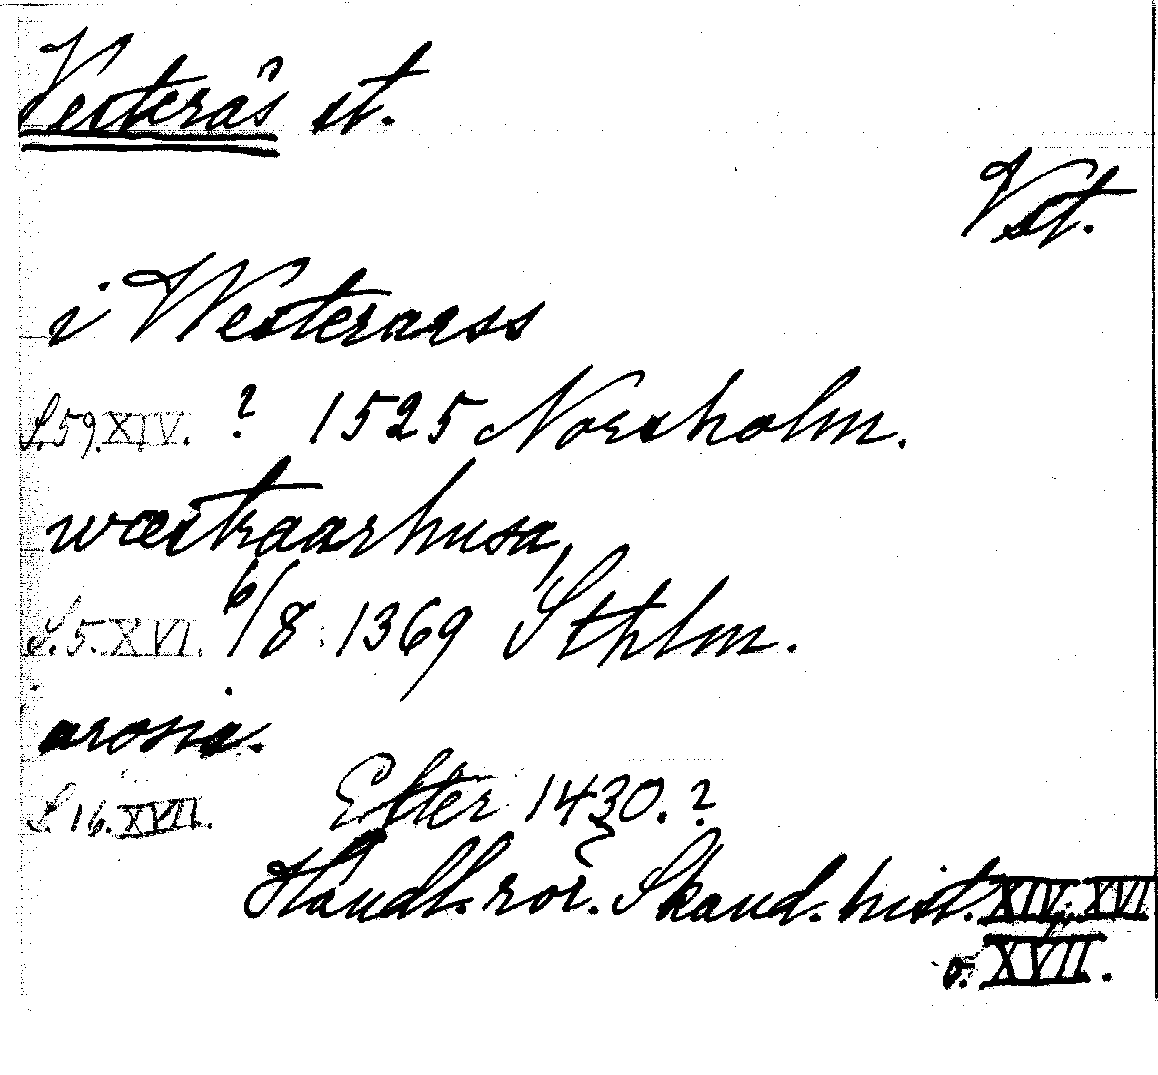 Vesterås st.
Vst.
i Westerarss
S. 59. XIV. ? 1525 Norsholm.
wæstraarhusa,
S. 5. XVI. 6/8 1369 Sthlm.
arosia.
S. 16. XVII. Efter 1430. ?
Handl. rör. Skand. hist. XIV; XVI
o. XVII.